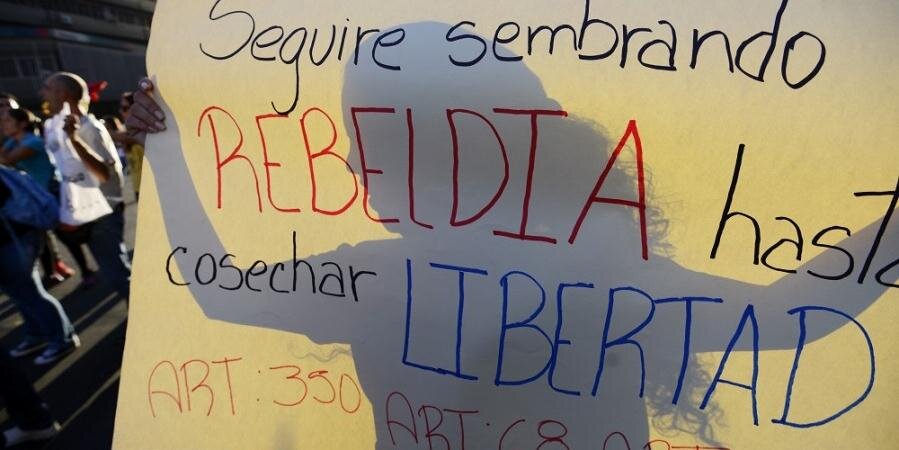 Seguire sembrando
REBELDIA hasta
cosechar LIBERTAD
ART: 350
ART: 68